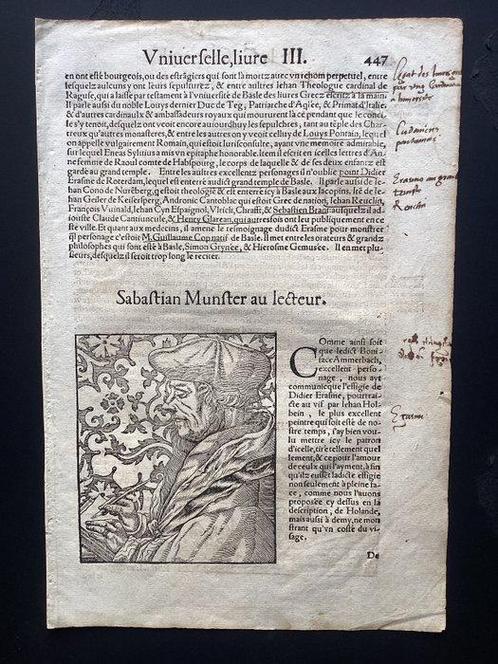 Vniuerſelle, liure III. 447
en ont eſté bourgeois, ou des eſtrãgiers qui ſont là mortz auec vn renom perpetuel, entre
leſquelz aulcuns y ont leurs ſepulturez, & entre aultres Iehan Theologue cardinal de
Raguſe, qui a laiſſe par teſtament à l'vniuerſité de Basle des liures Grez eſcritz à la main.
Il y parle auſſi du noble Louys dernier Duc de Teg, Patriarche d'Aqlee, & Primat d'Italie,
& d'autres cardinaulx & ambaſſadeurs royaux qui moururent là ce pendant que le conci-
le s'y tenoit, deſquelz on voit encore auiourdhuy les ſepulchres, tant au téple des Char-
treux qu'autres monaſteres, & entre les autres on y veoit celluy de Louys Pontain, lequel
on appelle vulgairement Romain, qui eſtoit Iuriſconſulte, ayant vne memoire admirable,
ſur lequel Eneas Syluius a mis vn epitaphe honorable. Item il eſcrit en icelles lettres d'An-
ne femme de Raoul comte de Habſpourg, le corps de laquelle & de ſes deux enfantz eſt
gardé au grand temple. Entre les aultres excellentz perſonnages il n'oublie point Didier
Eraſme de Roterdam, lequel eſt enterré audict grand temple de Basle. Il parle auſſi de Ie-
han Cono de Nurẽberg, q̃ eſtoit theologiẽ & eſt enterré icy à Basle aux Iacopins, Ité de Ie-
han Geiler de Keiſerſperg, Andronic Cantoblac qui eſtoit Grec de nation, Iehan Reuclin,
François Vuinald, Iehan Cyn Eſpaignol, Vlrich, Chrafft, & Sebaſtien Brãd auſquelz il ad-
iouſte Claude Cantiuncule, & Henry Glarean, qui autresfois ont leu publiquement en ce-
ſte ville. Et quant aux medecins, il amene le teſmoignage dudict Eraſme pour monſtrer
q̃l perſonage c'eſtoit M. Guillaume Copnatif de Basle. Il met entre les orateurs & grandz
philoſophes qui ſont eſté à Basle, Simon Grynee, & Hieroſme Gemuſee. Il en met plu-
ſieurs, deſquelz il ſeroit trop long le reciter.
Sabaſtian Munſter au lecteur.
COmme ainſi ſoit
que ledict Boni-
face Ammerbach,
excellent perſo-
nage, nous ayt
communicque l'effigie de
Didier Eraſme, pourtrai-
cte au vif par Iehan Hol-
bein, le plus excellent
peintre qui ſoit eſté de no-
ſtre temps, i'ay bien vou-
lu mettre icy le patron
d'icelle, tiré tellement quel
lement, & ce pour l'amour
de ceulx qui l'ayment, à fin
qu'ilz euſſẽt ladicte effigie
non ſeulement à pleine fa-
ce, comme nous l'auons
propoſee cy deſſus en la
deſcription, de Holande,
mais auſſi à demy, ne mon
ſtrant qu'vn coſté du vi-
ſage.
De
Eraſme